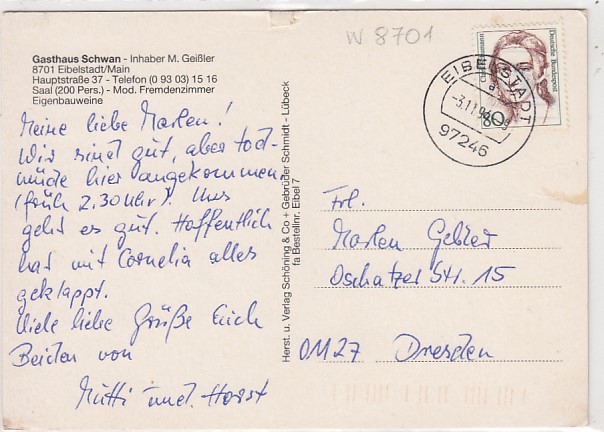 W 8701
Gasthaus Schwan - Inhaber M. Geißler
8701 Eibelstadt/Main
Hauptstraße 37 - Telefon (0 93 03) 15 16
Saal (200 Pers.) - Mod. Fremdenzimmer
Eigenbauweine
Meine liebe Marlen!
Wir sind gut, aber tod-
müde hier angekommen
(früh 2.30 Uhr). Uns
geht es gut. Hoffentlich
hat mit Cornelia alles
geklappt.
Viele liebe Grüße Euch
Beiden von
Mutti und. Horst
Herst. u. Verlag Schöning & Co + Gebrüder Schmidt - Lübeck
fa Bestellnr. Eibel 7
Deutsche Bundespost
80
EIBELSTADT
a
-3.11.94
97246
Frl.
Marlen Gebler
Oschatzer Str. 15
O1127 Dresden